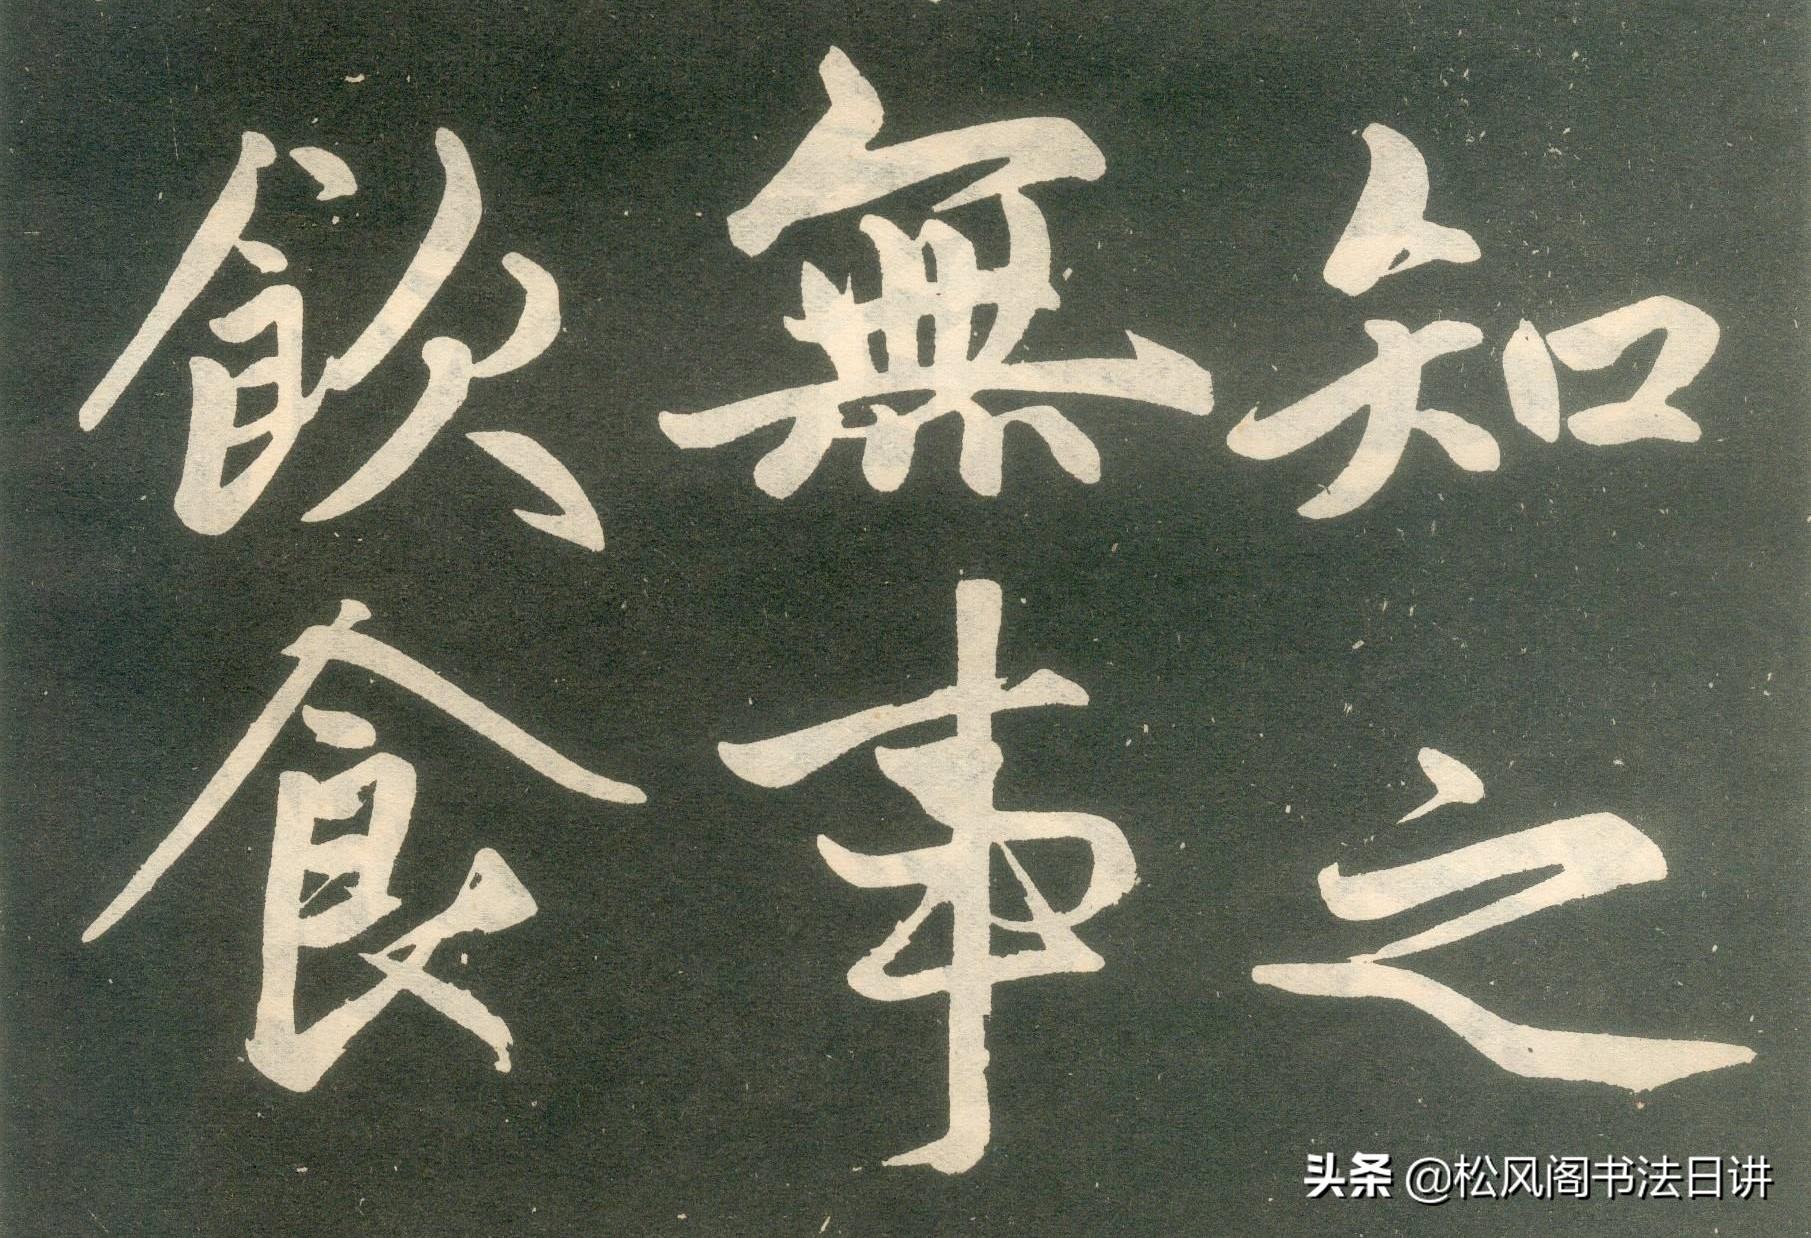 知之
無事
飲食
头条 @松风阁书法日讲